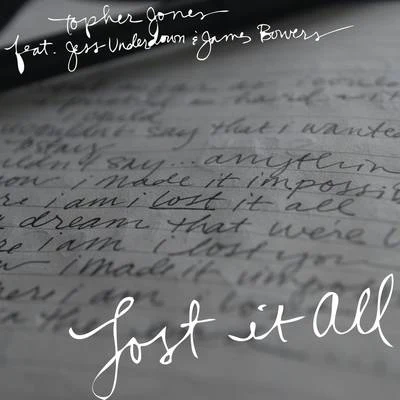 Topher Jones
feat. Jess Underdown & James Bowers
could
wouldn't say that i wanted
to stay
say... anything
i made it impossib
i am i lost it all
dream that were
i am i lost you
i made it impos
here i am i lo
Lost it All